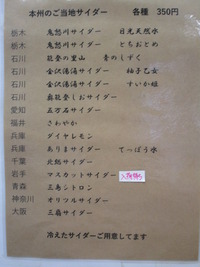 本州のご当地サイダー 各種 350円
栃木 鬼怒川サイダー 日光天然水
栃木 鬼怒川サイダー とちおとめ
石川 能登の里山 青のしずく
石川 金沢湯涌サイダー 柚子乙女
石川 金沢湯涌サイダー すいか姫
石川 奥能登しおサイダー
愛知 五万石サイダー
福井 さわやか
兵庫 ダイヤレモン
兵庫 ありまサイダー てっぽう水
千葉 北総サイダー
岩手 マスカットサイダー
青森 三島シトロン
神奈川 オリツルサイダー
大阪 三扇サイダー
冷えたサイダーご用意してます